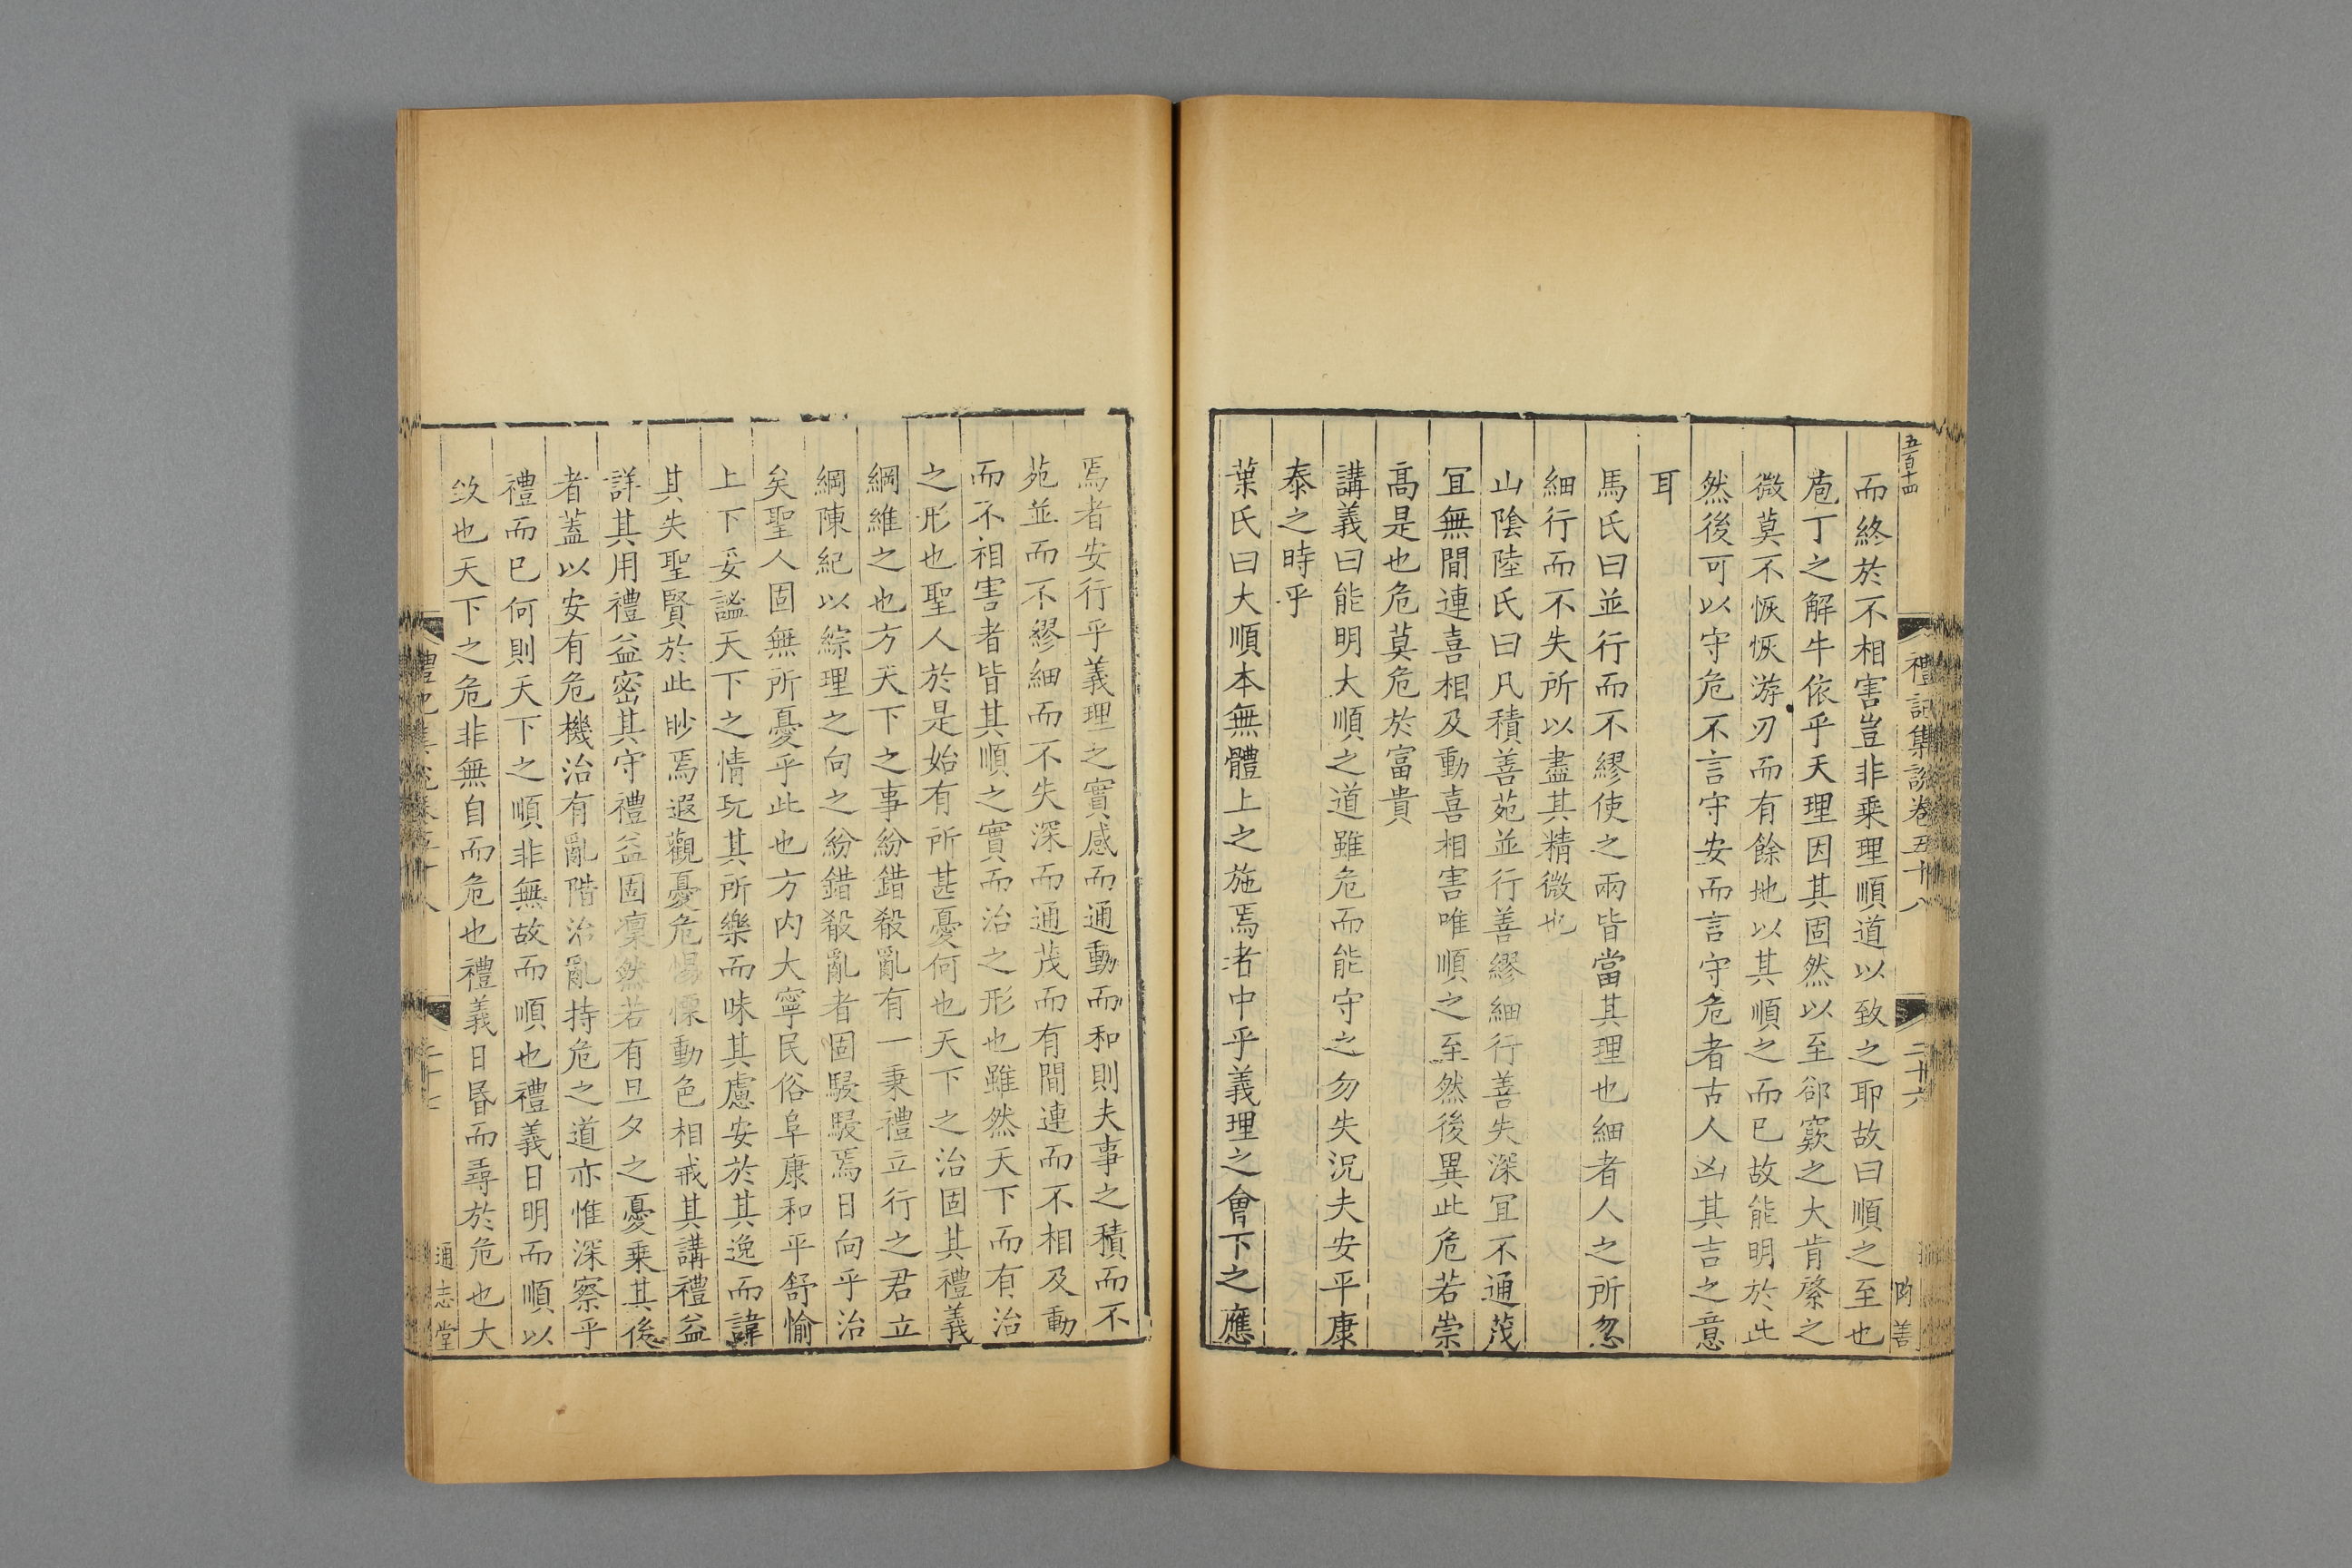 五百十四
禮記集說卷五十八
二十六
善
而終於不相害豈非乘理順道以致之耶故曰順之至也
庖丁之解牛依乎天理因其固然以至郤窾之大肯綮之
微莫不恢恢游刃而有餘地以其順之而已故能明於此
然後可以守危不言守安而言守危者古人凶其吉之意
耳
馬氏曰並行而不繆使之兩皆當其理也細者人之所忽
細行而不失所以盡其精微也
山陰陸氏曰凡積善苑並行善繆細行善失深冝不通茂
冝無間連喜相及動喜相害唯順之至然後異此危若崇
高是也危莫危於富貴
講義曰能明大順之道雖危而能守之勿失況夫安平康
泰之時乎
葉氏曰大順本無體上之施焉者中乎義理之會下之應
焉者安行乎義理之實感而通動而和則夫事之積而不
苑並而不繆細而不失深而通茂而有間連而不相及動
而不相害者皆其順之實而治之形也雖然天下而有治
之形也聖人於是始有所甚憂何也天下之治固其禮義
綱維之也方天下之事紛錯殽亂有一秉禮立行之君立
綱陳紀以綜理之向之紛錯殽亂者固駸駸焉日向乎治
矣聖人固無所憂乎此也方內大寧民俗阜康和平舒愉
上下妥謐天下之情玩其所樂而昧其慮安於其逸而諱
其失聖賢於此眇焉遐觀憂危惕慄動色相戒其講禮益
詳其用禮益密其守禮益固凜然若有旦夕之憂乗其後
者蓋以安有危機治有亂階治亂持危之道亦惟深察乎
禮而已何則天下之順非無故而順也禮義日明而順以
效也天下之危非無自而危也禮義日昬而尋於危也大
禮記集說卷五十八
二十七
通志堂